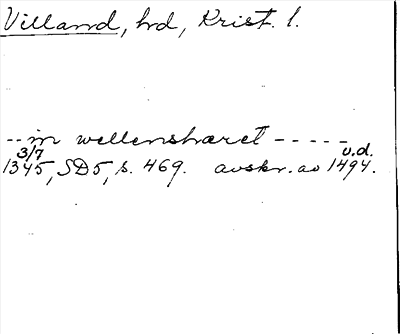 Villand, hd, Krist. l.
-- in wellenshæret - - - - -
3/7 o.d.
1345, SD5, s. 469. avskr. av 1494.